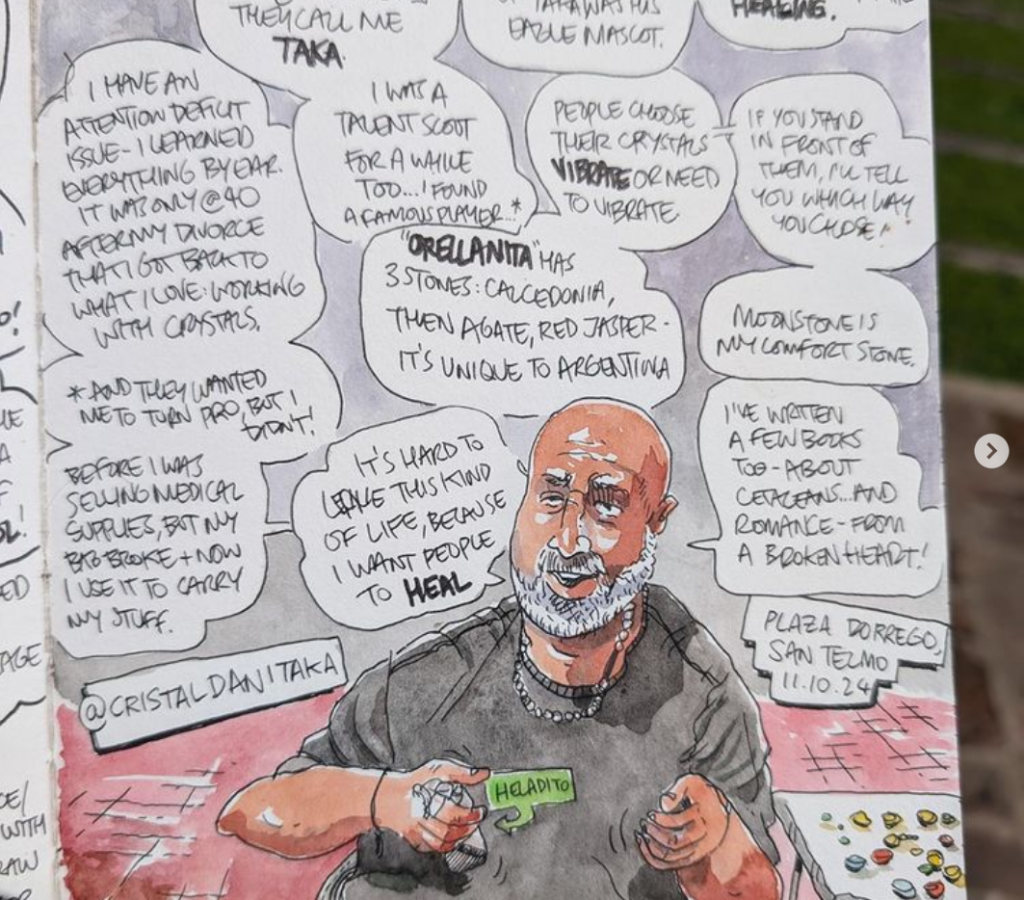 THEY CALL ME
TAKA.
TAKA WAS HIS
EAGLE MASCOT.
HEALING.
I HAVE AN
ATTENTION DEFICIT
ISSUE - I LEARNED
EVERYTHING BY EAR.
IT WAS ONLY @ 40
AFTER MY DIVORCE
THAT I GOT BACK TO
WHAT I LOVE: WORKING
WITH CRYSTALS.
I WAS A
TALENT SCOUT
FOR A WHILE
TOO... I FOUND
A FAMOUS PLAYER...*
PEOPLE CHOOSE
THEIR CRYSTALS
VIBRATE OR NEED
TO VIBRATE.
IF YOU STAND
IN FRONT OF
THEM, I'LL TELL
YOU WHICH WAY
YOU CHOSE!
"ORELLANITA" HAS
3 STONES: CALCEDONIA,
THEN AGATE, RED JASPER -
IT'S UNIQUE TO ARGENTINA
MOONSTONE IS
MY COMFORT STONE.
* AND THEY WANTED
ME TO TURN PRO, BUT I
DIDN'T!
BEFORE I WAS
SELLING MEDICAL
SUPPLIES, BUT MY
BAG BROKE + NOW
I USE IT TO CARRY
MY STUFF.
IT'S HARD TO
LEAVE THIS KIND
OF LIFE, BECAUSE
I WANT PEOPLE
TO HEAL
I'VE WRITTEN
A FEW BOOKS
TOO - ABOUT
CETACEANS... AND
ROMANCE - FROM
A BROKEN HEART!
@CRISTALDANITAKA
PLAZA DORREGO,
SAN TELMO
11.10.24
HELADITO